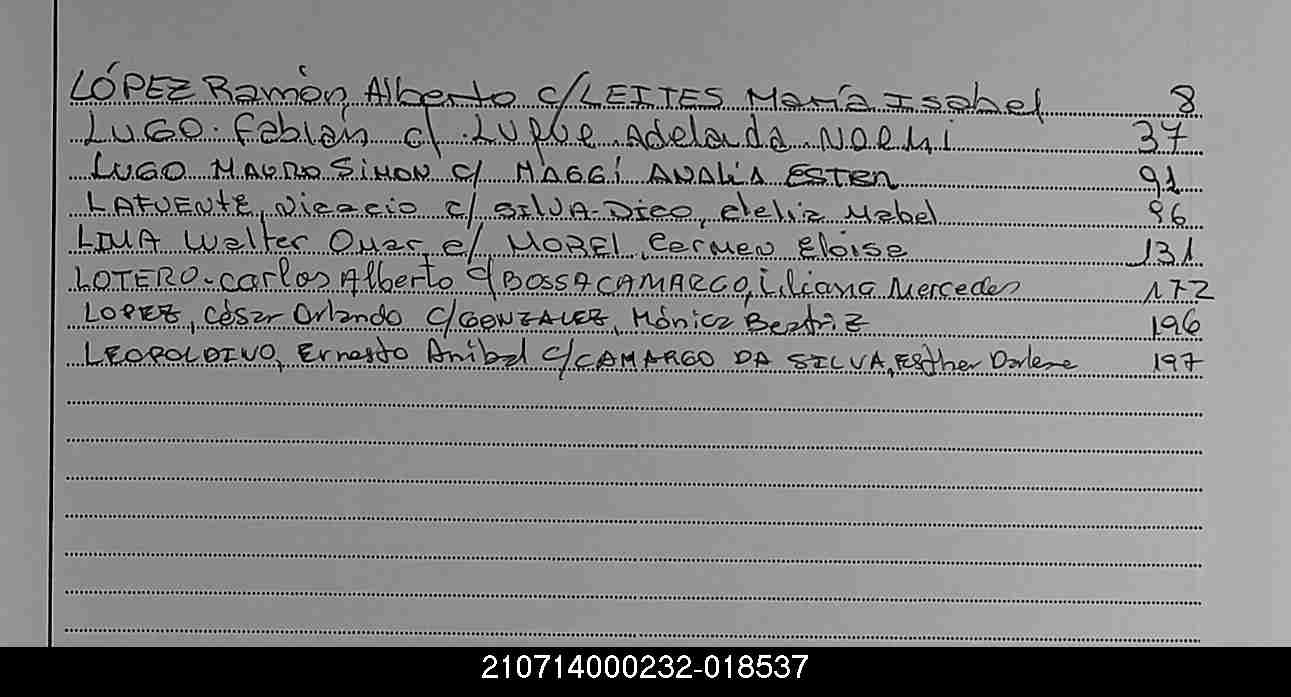 LÓPEZ Ramón, Alberto c/ LEITES María Isabel 8
LUGO. Fabián c/. LUQUE Adelaida NOEMI 37
LUGO MAURO SIMON c/ MAGGI ANALIA ESTER 91
LAFUENTE, Nicacio c/ SILVA-DICO, Clelia Mabel 96
LIMA Walter Omar c/ MOREL, Carmen Eloisa 131
LOTERO. Carlos Alberto c/ BOSSA CAMARGO, Liliana Mercedes 172
LOPEZ, César Orlando c/ GONZALEZ, Mónica Beatriz 196
LEOPOLDINO, Ernesto Anibal c/ CAMARGO DA SILVA, Esther Darlene 197
210714000232-018537